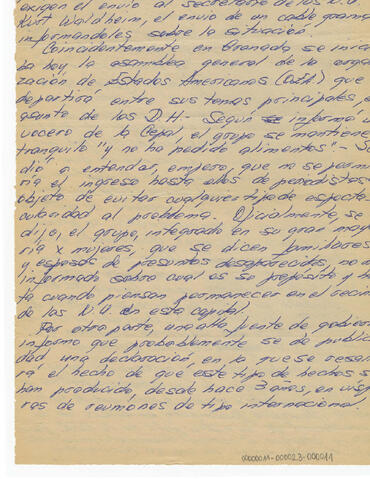 exigen el envío al secretario de las N.U.
Kurt Waldheim, el envío de un cablegrama
informandoles sobre la situacion.
Coincidentemente en Granada se inicia
ba hoy la asamblea general de la organi
zación de Estados Americanos (OEA) que
departirá entre sus temas principales, el
asunto de los D.H- Según se informó un
vocero de la Cepal, el grupo se mantiene
tranquilo "y no ha pedido alimentos" - Se
dió a entender, empero, que no se permi
ría el ingreso hasta ellos de periodistas
objeto de evitar cualquier tipo de especta
cularidad al problema. Oficialmente, se
dijo, el grupo, integrado en su gran mayo
ría x mujeres, que se dicen familiares
y esposas de presuntos desaparecidos, no ha
informado sobre cual es su propósito y has
ta cuando piensan permanecer en el recin
de las N.U. en esta capital.
Por otra parte, una alta fuente de gobier
informo que probablemente se de publici
dad una declaración, en la que se resalta
rá el hecho de que este tipo de hechos se
han producido, desde hace 3 años, en víspe
ras de reuniones de tipo internacional.
00000011-000023-000011